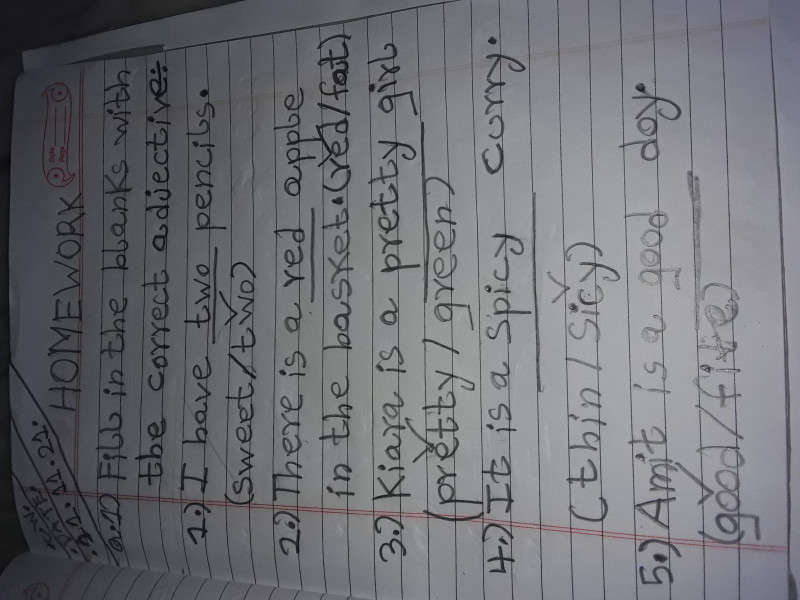 HOMEWORK
DATE:
Q.1) Fill in the blanks with
the correct adjective:
1.) I have two pencils.
(sweet/two)
2.) There is a red apple
in the basket. (red/fat)
3.) Kiara is a pretty girl
(pretty/green)
4.) It is a spicy curry.
(thin/sicy)
5.) Amit is a good doy.